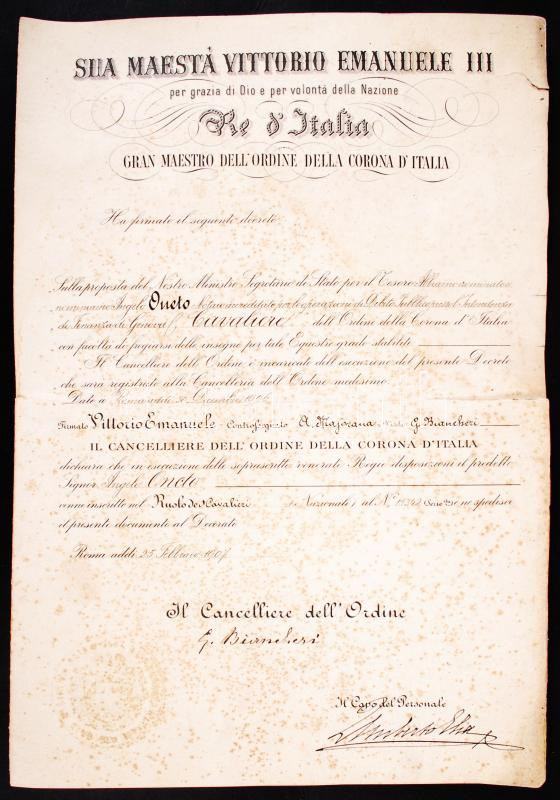 SUA MAESTÀ VITTORIO EMANUELE III
per grazia di Dio e per volontà della Nazione
Re d'Italia
GRAN MAESTRO DELL'ORDINE DELLA CORONA D'ITALIA
Ha firmato il seguente decreto:
Sulla proposta del Nostro Ministro Segretario di Stato per il Tesoro Abbiamo nominato e
nominiamo Angelo Oneto Notaio accreditato per le operazioni di Debito Pubblico presso l'Intendenza
di Finanza di Genova, Cavaliere dell'Ordine della Corona d'Italia
con facoltà di fregiarsi delle insegne per tale Equestre grado stabilite
Il Cancelliere dell'Ordine è incaricato dell'esecuzione del presente Decreto
che sarà registrato alla Cancelleria dell'Ordine medesimo.
Dato a Roma addì Dicembre 1906
Firmato Vittorio Emanuele Controfirmato A. Majorana Visto G. Biancheri
IL CANCELLIERE DELL'ORDINE DELLA CORONA D'ITALIA
dichiara che in esecuzione delle soprascritte venerate Regie disposizioni il predetto
Signor Angelo Oneto
venne inscritto nel Ruolo dei Cavalieri Nazionali al N° ne spedisce
il presente documento al Decorato
Roma addì 25 Febbraio 1907
Il Cancelliere dell'Ordine
G. Biancheri
Il Capo del Personale